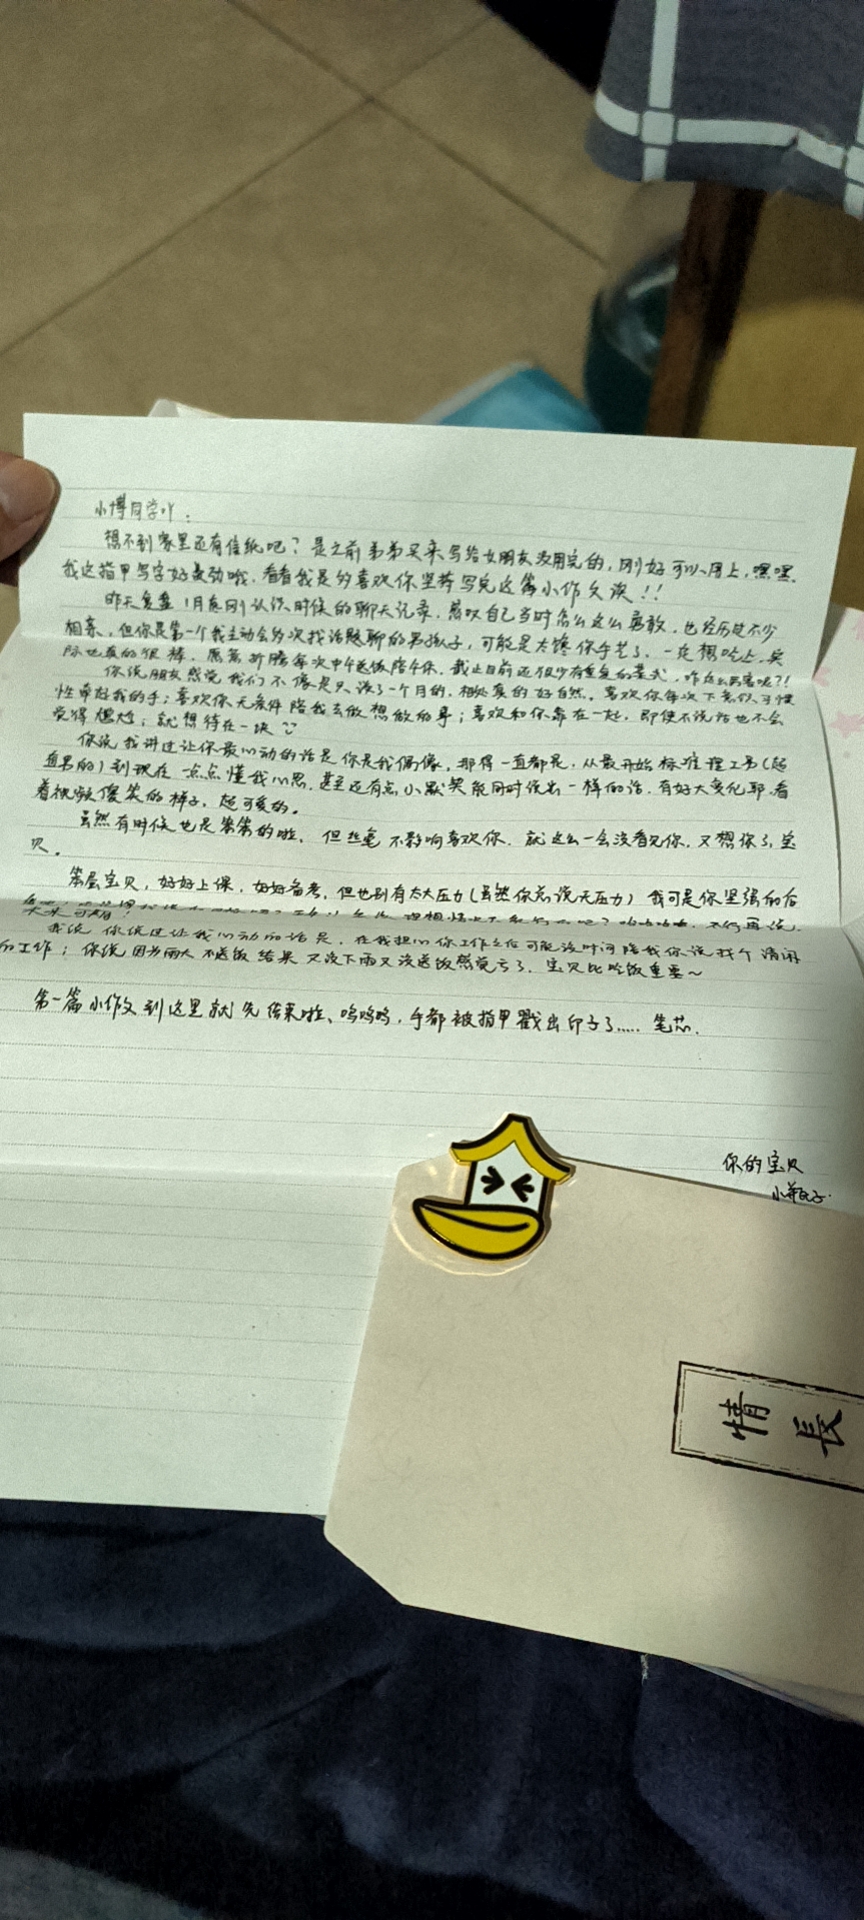 小博同学吖：
想不到家里还有信纸吧？是之前弟弟买来写给女朋友没用完的，刚好可以用上，嘿嘿.
我这指甲写字好费劲哦，看看我是多喜欢你坚持写完这篇小作文诶！！
昨天复盘1月底刚认识时候的聊天记录，感叹自己当时怎么这么勇敢，也经历过不少
相亲，但你是第一个我主动会多次找话题聊的男孩子，可能是太馋你手艺了，一定想吃上，实
际也真的很棒，
你说朋友感觉我们不像是只谈了一个月的，相处真的好自然，喜欢你每次下意识、习惯
性牵起我的手；喜欢你无条件陪我去做想做的事；喜欢和你靠在一起，即使不说话也不会
觉得尴尬；就想待在一块
你说我讲过让你最心动的话是你是我偶像，那得一直都是，从最开始标准理工男（超
直男的）到现在一点点懂我心思，甚至还有点小默契能同时说出一样的话，有好大变化耶，看
着视频傻笑的样子，超可爱的。
虽然有时候也是笨笨的啦，但丝毫不影响喜欢你，就这么一会没看见你，又想你了，宝
贝。
笨蛋宝贝，好好上课，好好备考，但也别有太大压力（虽然你总说无压力）我可是你坚强的后
我说你说过让我心动的话是，在我担心你工作之后可能没时间陪我你说找个清闲
的工作；你说因为雨大不送饭结果又没下雨又没送饭感觉亏了，宝贝比吃饭重要～
第一篇小作文到这里就先结束啦、呜呜呜，手都被指甲戳出印子了..... 笔芯.
你的宝贝
情长